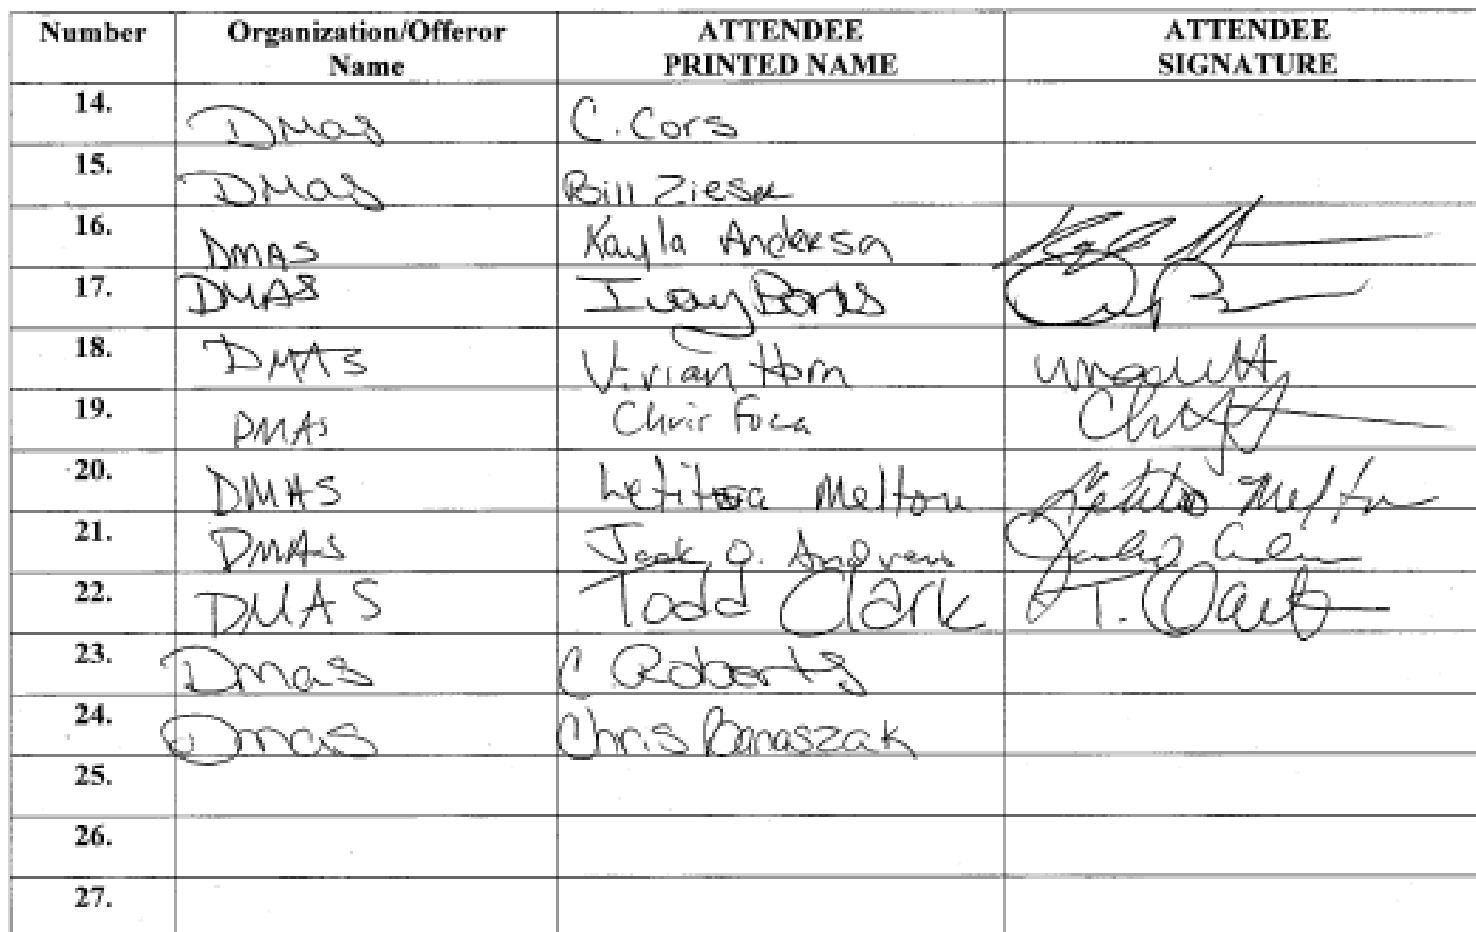 Number Organization/Offeror Name ATTENDEE PRINTED NAME ATTENDEE SIGNATURE
14. DMas C. Cors
15. DMas Bill Zieser
16. DMAS Kayla Anderson
17. DMAS Ivory Banks
18. DMAS Vivian Horn
19. DMAS Chris Foca
20. DMAS Letitia Melton Letitia Melton
21. DMAS Jack Q. Andrews
22. DMAS Todd Clark T. Clark
23. Dmas C Roberts
24. Dmas Chris Banaszak
25.
26.
27.